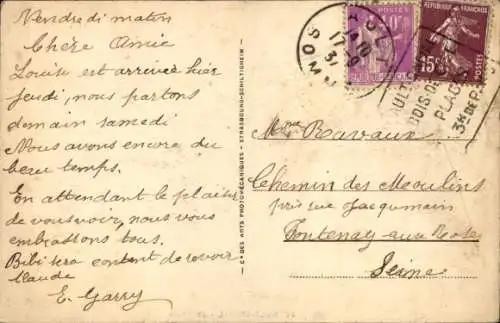 Vendredi matin
Chère Amie
Louise est arrivée hier
jeudi, nous partons
demain samedi
Nous avons encore du
beau temps.
En attendant le plaisir
de vous voir, nous vous
embrassons tous.
Bibi sera content de revoir
Claude
E. Garry
Cie DES ARTS PHOTOMÉCANIQUES - STRASBOURG-SCHILTIGHEIM
AULT
SOMME
17-9
REPUBLIQUE FRANÇAISE
15c
POSTES
AULT
BOIS-DE
PLAGE
3H DE P
Mme Ravaux
Chemin des Moulins
près rue Jacquemain
Fontenay aux Roses
Seine